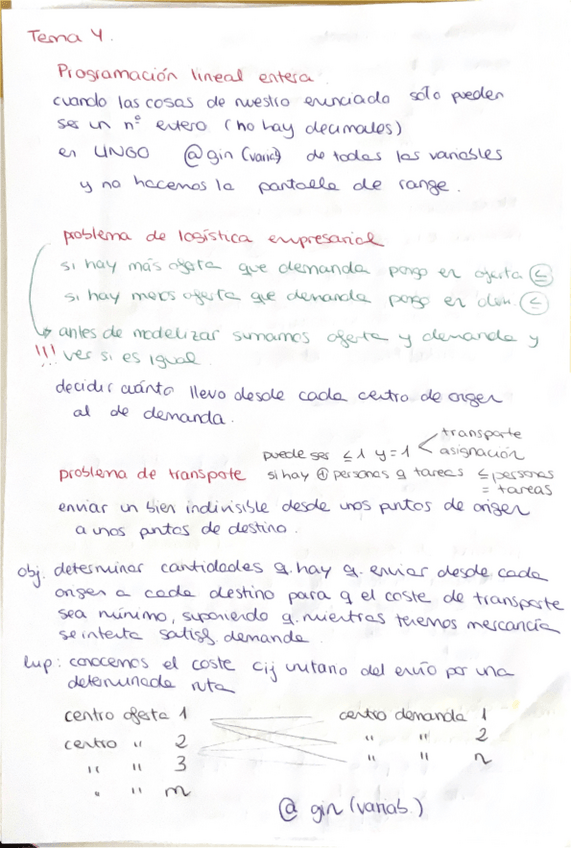 Tema 4.
Programación lineal entera.
cuando las cosas de nuestro enunciado sólo pueden
ser un nº entero (no hay decimales)
en LINGO @gin (variab) de todas las variables
y no hacemos la pantalla de range.
problema de logística empresarial
si hay más oferta que demanda pongo en oferta ≤
si hay menos oferta que demanda pongo en dem. ≤
antes de modelizar sumamos oferta y demanda y
!!! ver si es igual.
decidir cuánto llevo desde cada centro de origen
al de demanda.
puede ser ≤ 1 y = 1 < transporte
asignación
problema de transporte si hay ⊕ personas q tareas ≤ personas
= tareas
enviar un bien indivisible desde unos puntos de origen
a unos puntos de destino.
obj. determinar cantidades q. hay q. enviar desde cada
origen a cada destino para q el coste de transporte
sea mínimo, suponiendo q. mientras tenemos mercancía
se intenta satisf. demanda.
lup: conocemos el coste cij unitario del envío por una
determinada ruta
centro oferta 1 centro demanda 1
centro " 2 " " 2
" " 3 " " n
" " m
@ gin (variab.)